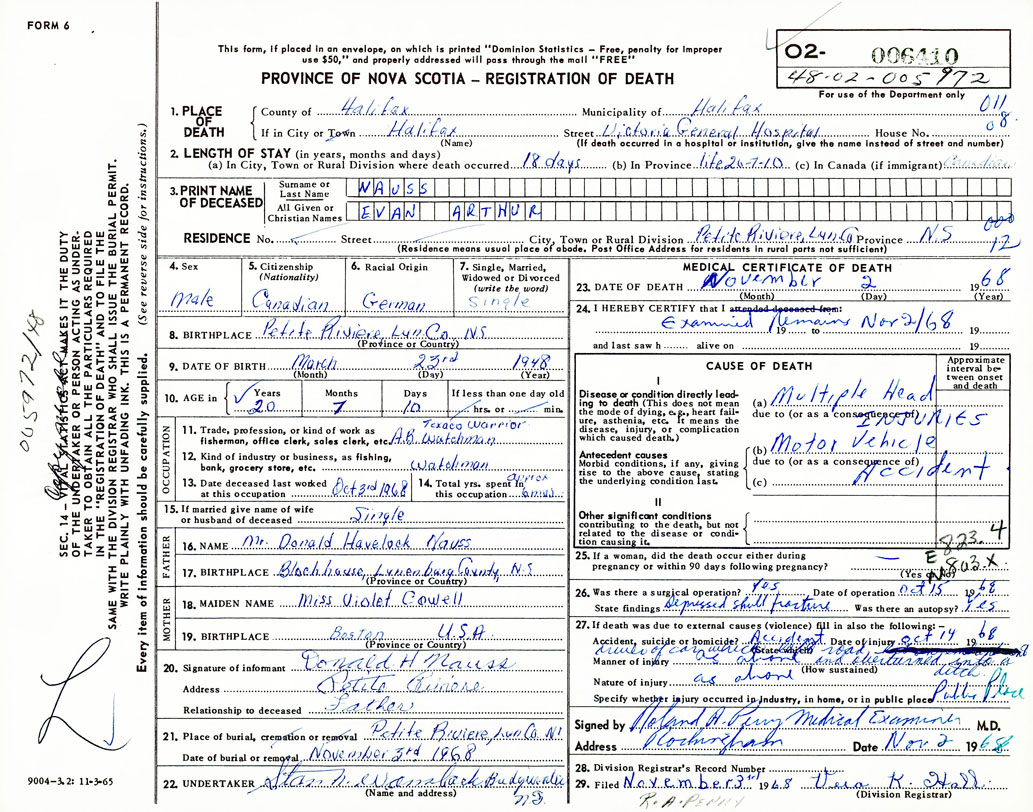 FORM 6
This form, if placed in an envelope, on which is printed "Dominion Statistics – Free, penalty for improper
use $50," and properly addressed will pass through the mail "FREE"
PROVINCE OF NOVA SCOTIA – REGISTRATION OF DEATH
O2- 006410
48-02-005972
For use of the Department only
011
08
1. PLACE OF DEATH
County of Halifax Municipality of Halifax
If in City or Town Halifax Street Victoria General Hospital House No.
(Name) (If death occurred in a hospital or institution, give the name instead of street and number)
2. LENGTH OF STAY (in years, months and days)
(a) In City, Town or Rural Division where death occurred 18 days (b) In Province life 20-7-10 (c) In Canada (if immigrant) Canadian
3. PRINT NAME OF DECEASED
Surname or Last Name NAUSS
All Given or Christian Names EVAN ARTHUR
000
12
RESIDENCE No. Street City, Town or Rural Division Petite Riviere, Lun Co Province NS
(Residence means usual place of abode. Post Office Address for residents in rural parts not sufficient)
4. Sex
Male
5. Citizenship (Nationality)
Canadian
6. Racial Origin
German
7. Single, Married, Widowed or Divorced (write the word)
Single
8. BIRTHPLACE Petite Riviere, Lun Co. NS
(Province or Country)
9. DATE OF BIRTH March 23rd 1948
(Month) (Day) (Year)
10. AGE in Years Months Days If less than one day old
20 7 10 hrs. or min.
OCCUPATION
Texaco Warrior
11. Trade, profession or kind of work as
fisherman, office clerk, sales clerk, etc. A.B. Watchman
12. Kind of industry or business, as fishing,
bank, grocery store, etc. Watchman
13. Date deceased last worked
at this occupation Oct 3rd 1968
14. Total yrs. spent in
this occupation approx 6 mos
15. If married give name of wife
or husband of deceased Single
FATHER
16. NAME Mr. Donald Havelock Nauss
17. BIRTHPLACE Blockhouse, Lunenburg County, N-S
(Province or Country)
MOTHER
18. MAIDEN NAME Miss Violet Cowell
19. BIRTHPLACE Boston U.S.A.
(Province or Country)
20. Signature of informant Donald H Nauss
Address Petite Riviere
Relationship to deceased Father
21. Place of burial, cremation or removal Petite Riviere, Lun Co. NS
Date of burial or removal November 3rd 1968
22. UNDERTAKER
(Name and address)
MEDICAL CERTIFICATE OF DEATH
23. DATE OF DEATH November 2 1968
(Month) (Day) (Year)
24. I HEREBY CERTIFY that I attended deceased from:
Examined Remains Nov 2/68
19 to 19
and last saw h alive on 19
CAUSE OF DEATH
Approximate interval between onset and death
I
Disease or condition directly leading to death (This does not mean the mode of dying, e.g., heart failure, asthenia, etc. It means the disease, injury, or complication which caused death.)
(a) Multiple Head
due to (or as a consequence of) INJURIES
Antecedent causes
Morbid conditions, if any, giving rise to the above cause, stating the underlying condition last.
(b) Motor Vehicle
due to (or as a consequence of) Accident
(c)
II
Other significant conditions
contributing to the death, but not related to the disease or condition causing it.
E 823.4
N803.X
25. If a woman, did the death occur either during
pregnancy or within 90 days following pregnancy?
(Yes or No)
26. Was there a surgical operation? Yes Date of operation Oct 15 1968
State findings Depressed skull fracture Was there an autopsy? Yes
27. If death was due to external causes (violence) fill in also the following:–
Accident, suicide or homicide? Accident Date of injury Oct 14 1968
(State which)
driver of car which road
Manner of injury as above and overturned into a ditch
(How sustained)
Nature of injury as above
Specify whether injury occurred in industry, in home, or in public place Public Place
Signed by Roland A. Perry Medical Examiner M.D.
Address Rockingham Date Nov 2 1968
28. Division Registrar's Record Number
29. Filed November 3rd 1968 Vera K. Hall
(Division Registrar)
R. A. PENNY
005972/48
SEC. 14 – VITAL STATISTICS ACT MAKES IT THE DUTY
OF THE UNDERTAKER OR PERSON ACTING AS UNDER-
TAKER TO OBTAIN ALL THE PARTICULARS REQUIRED
IN THE "REGISTRATION OF DEATH" AND TO FILE THE
SAME WITH THE DIVISION REGISTRAR WHO SHALL ISSUE THE BURIAL PERMIT.
WRITE PLAINLY WITH UNFADING INK. THIS IS A PERMANENT RECORD.
Every item of information should be carefully supplied. (See reverse side for instructions.)
9004-3.2: 11-3-65